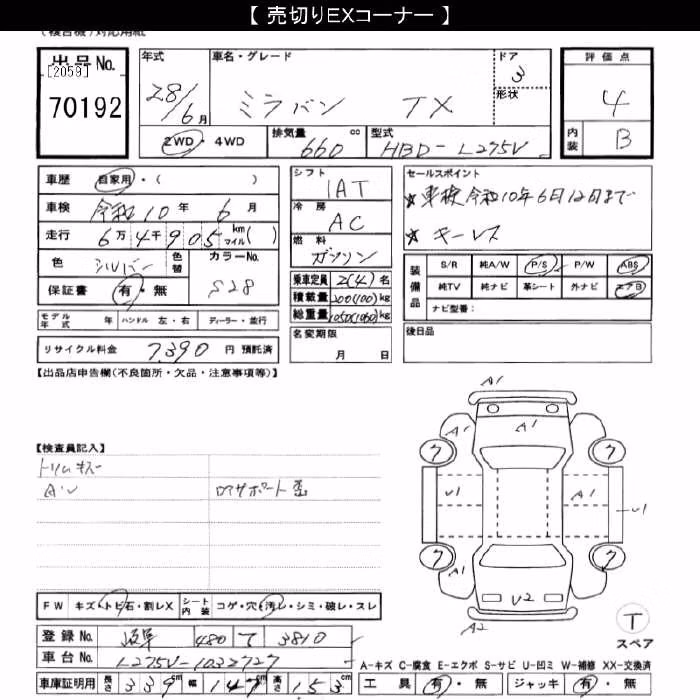 【 売切りEXコーナー 】
出品No.
[2059]
70192
年式
28/6月
車名・グレード
ミラバン TX
ドア
3
形状
評価点
4
内装
B
2WD・4WD
排気量 660 cc
型式
HBD-L275V
車歴 自家用・( )
車検 令和10年6月
走行 6万4千905 km マイル( )
色 シルバー 色替
カラーNo.
S28
保証書 有・無
モデル年式 年 ハンドル 左・右 ディーラー・並行
リサイクル料金 7,390 円 預託済
シフト
IAT
冷房
AC
燃料
ガソリン
乗車定員 2(4)名
積載量 200(100)kg
総重量 1050(1060)kg
名変期限
月 日
セールスポイント
☆車検 令和10年6月12日まで
☆キーレス
装備品
S/R 純A/W P/S P/W ABS
純TV 純ナビ 革シート 外ナビ エアB
ナビ型番:
後日品
【出品店申告欄(不良箇所・欠品・注意事項等)】
【検査員記入】
トリムキズ
A・U
コアサポート歪
FW キズ・トビ石・割レX
シート内装 コゲ・穴・汚レ・シミ・破レ・スレ
登録No. 岐阜 480 て 3810
車台No. L275V-1032727
車庫証明用 長さ 339cm 幅 147cm 高さ 153cm
A1
A1
A1
A1
ク
ク
U1
A1
U1
ク
ク
A1
U2
A2
T
スペア
A-キズ C-腐食 E-エクボ S-サビ U-凹ミ W-補修 XX-交換済
工具 有・無 ジャッキ 有・無